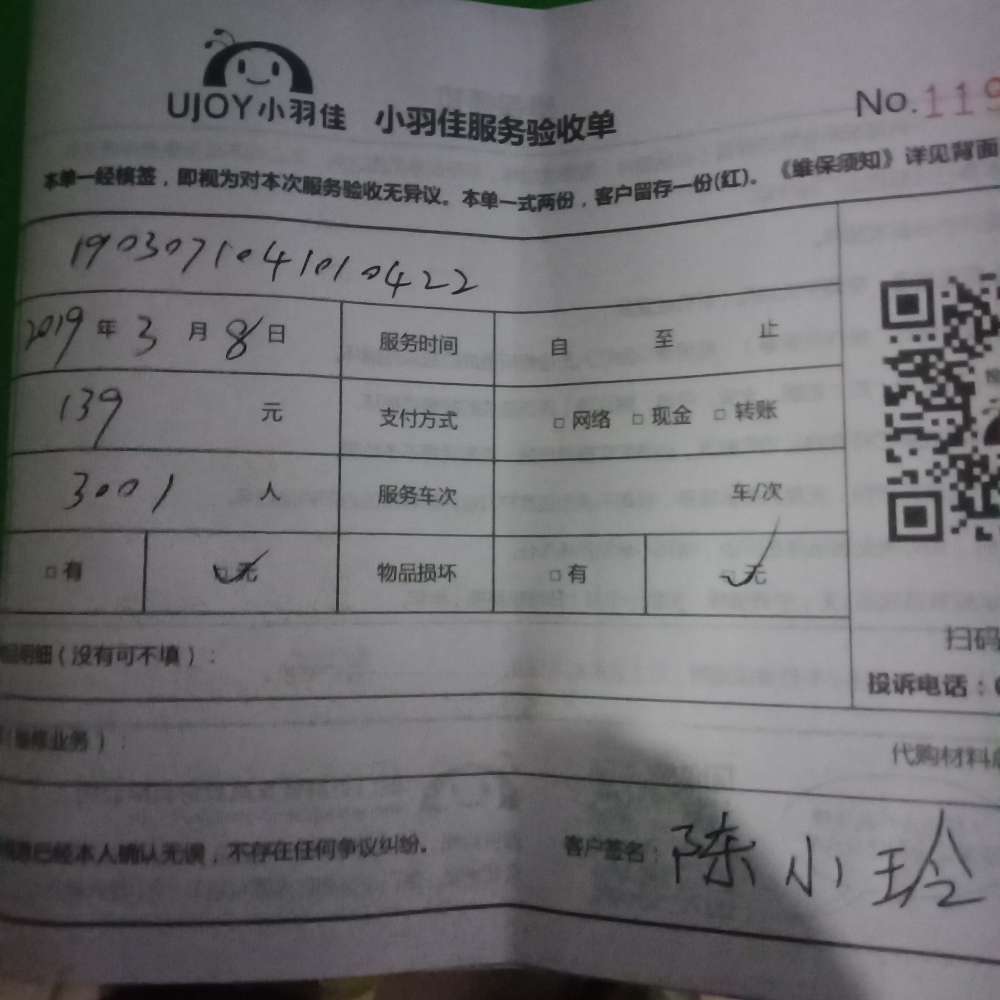 UJOY小羽佳 小羽佳服务验收单 No.119
本单一经核签，即视为对本次服务验收无异议。本单一式两份，客户留存一份(红)。《维保须知》详见背面
1903071041010422
2019年3月8日 服务时间 自 至 止
139 元 支付方式 □网络 □现金 □转账
3001 人 服务车次 车/次
□有 □无 物品损坏 □有 □无
明细（没有可不填）：
扫码
投诉电话：
业务）：
代购材料
已经本人确认无误，不存在任何争议纠纷。 客户签名：陈小玲